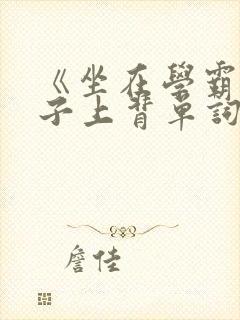 《坐在學霸
子上背單詞
詹佳